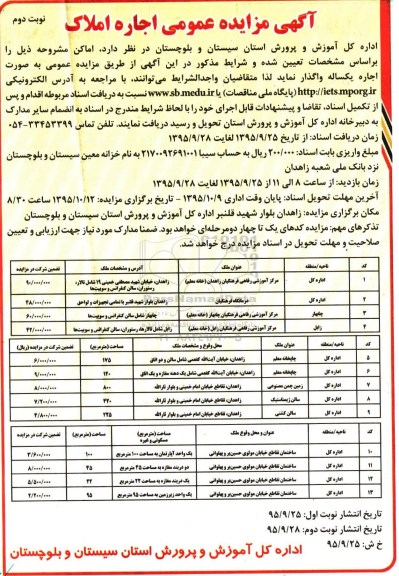 نوبت دوم
آگهی مزایده عمومی اجاره املاک
اداره کل آموزش و پرورش استان سیستان و بلوچستان در نظر دارد، اماکن مشروحه ذیل را
براساس مشخصات تعیین شده و شرایط مذکور در این آگهی از طریق مزایده عمومی به صورت
اجاره یکساله واگذار نماید لذا متقاضیان واجدالشرایط می‌توانند، با مراجعه به آدرس الکترونیکی
http://iets.mporg.ir (پایگاه ملی مناقصات) یا www.sb.medu.ir نسبت به دریافت اسناد مربوطه اقدام و پس
از تکمیل اسناد، تقاضا و پیشنهادات قابل اجرای خود را با لحاظ شرایط مندرج در اسناد به انضمام سایر مدارک
به دبیرخانه اداره کل آموزش و پرورش استان تحویل و رسید دریافت نمایند. تلفن تماس ۳۳۴۵۳۳۹۹-۰۵۴
زمان دریافت اسناد: از تاریخ ۱۳۹۵/۹/۲۵ لغایت ۱۳۹۵/۹/۲۸
مبلغ واریزی بابت اسناد: ۲۰۰/۰۰۰ ریال به حساب سیبا ۲۱۷۰۰۹۲۶۹۱۰۰۱ به نام خزانه معین سیستان و بلوچستان
نزد بانک ملی شعبه زاهدان
زمان بازدید: از ساعت ۸ الی ۱۱ از ۱۳۹۵/۹/۲۵ لغایت ۱۳۹۵/۹/۲۸
آخرین مهلت تحویل اسناد: پایان وقت اداری ۱۳۹۵/۱۰/۹ - تاریخ برگزاری مزایده: ۱۳۹۵/۱۰/۱۲ ساعت ۸/۳۰
مکان برگزاری مزایده: زاهدان بلوار شهید قلنبر اداره کل آموزش و پرورش استان سیستان و بلوچستان
تذکرهای مهم: مزایده کدهای یک تا چهار دومرحله‌ای خواهد بود. ضمنا مدارک مورد نیاز جهت ارزیابی و تعیین
صلاحیت و مهلت تحویل در اسناد مزایده درج خواهد شد.
کد ناحیه/منطقه عنوان ملک آدرس و مشخصات ملک تضمین شرکت در مزایده
۱ اداره کل مرکز آموزشی رفاهی فرهنگیان زاهدان (خانه معلم) زاهدان، خیابان شهید مصطفی خمینی ۱۹ شامل تالار، رستوران، سالن کنفرانس و سوییت‌ها ۹۰/۰۰۰/۰۰۰
۲ اداره کل زاهدان بلوار شهید قلنبر با تمامی تجهیزات و لواحق ۳۸/۰۰۰/۰۰۰
۳ چابهار مرکز آموزشی رفاهی فرهنگیان چابهار (خانه معلم) چابهار شامل سالن کنفرانس و سوییت‌ها ۶۰/۰۰۰/۰۰۰
۴ زابل مرکز آموزشی رفاهی فرهنگیان زابل (خانه معلم) زابل شامل تالارها، رستوران، سالن کنفرانس و سوییت‌ها
کد ناحیه/منطقه عنوان ملک محل وقوع و مشخصات ملک مساحت (مترمربع) تضمین شرکت در مزایده (ریال)
۵ اداره کل چاپخانه معلم زاهدان، خیابان آیت‌الله کفعمی شامل سالن و دو اتاق ۱۷۵ ۶/۰۰۰/۰۰۰
۶ اداره کل چاپخانه معلم زاهدان، خیابان آیت‌الله کفعمی شامل یک دهنه مغازه و یک اتاق ۱۴۰ ۹/۰۰۰/۰۰۰
۷ اداره کل زمین چمن مصنوعی زاهدان، تقاطع خیابان امام خمینی و بلوار ثارالله ۸۰۰ ۸/۰۰۰/۰۰۰
۸ اداره کل سالن ژیمناستیک زاهدان، تقاطع خیابان امام خمینی و بلوار ثارالله ۴۲۰ ۷/۲۰۰/۰۰۰
۹ اداره کل سالن کشتی زاهدان، تقاطع خیابان امام خمینی و بلوار ثارالله ۲۲۵ ۴/۸۰۰/۰۰۰
کد ناحیه/منطقه عنوان و محل وقوع ملک مساحت (مترمربع) مسکونی و غیره مساحت (مترمربع) تضمین شرکت در مزایده
۱۰ اداره کل ساختمان تقاطع خیابان مولوی حسین‌بر و پهلوانی یک واحد آپارتمان به مساحت ۱۰۰ مترمربع ۱۰۰ ۳/۶۰۰/۰۰۰
۱۱ اداره کل ساختمان تقاطع خیابان مولوی حسین‌بر و پهلوانی دو دربند مغازه به مساحت ۴۵ مترمربع ۴۵ ۸/۰۰۰/۰۰۰
۱۲ اداره کل ساختمان تقاطع خیابان مولوی حسین‌بر و پهلوانی یک دربند مغازه به مساحت ۲۲ مترمربع ۲۲ ۵/۵۰۰/۰۰۰
۱۳ اداره کل ساختمان تقاطع خیابان مولوی حسین‌بر و پهلوانی یک واحد زیرزمین به مساحت ۹۵ مترمربع ۹۵ ۲/۴۰۰/۰۰۰
تاریخ انتشار نوبت اول: ۹۵/۹/۲۵
تاریخ انتشار نوبت دوم: ۹۵/۹/۲۸
خ ش: ۹۵/۹/۲۵
اداره کل آموزش و پرورش استان سیستان و بلوچستان